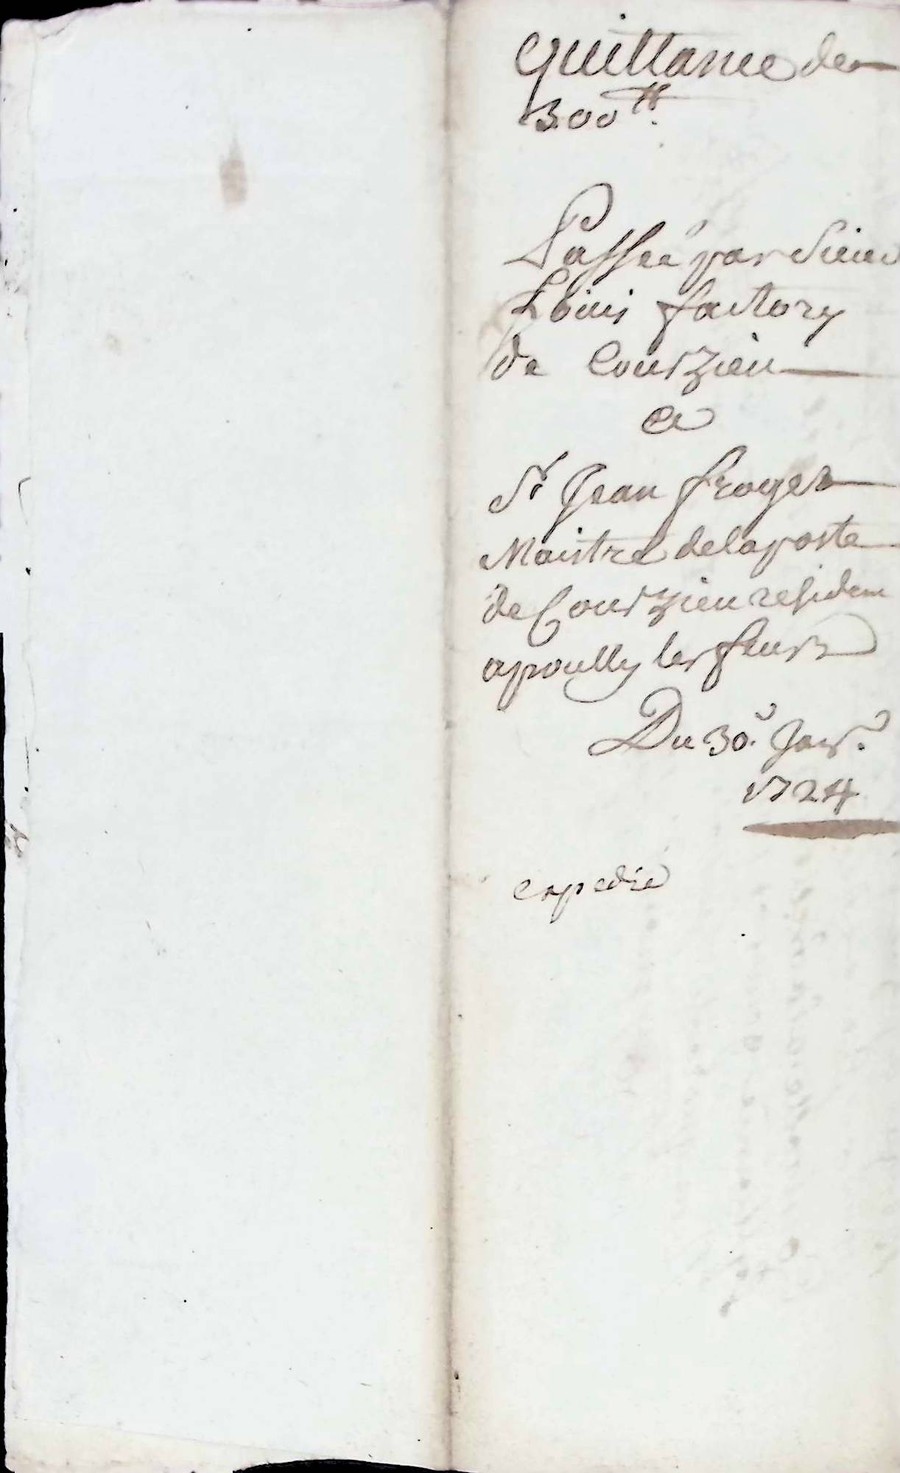 Quittance de
300ᵗᵗ.
Passée par Sieur
Louis factory
de Courzieu
a
Sʳ Jean froger
Maistre delaposte
de Courzieu residant
apouilly les feurs
Du 30ᵉ. Janvʳ.
1724
expedié